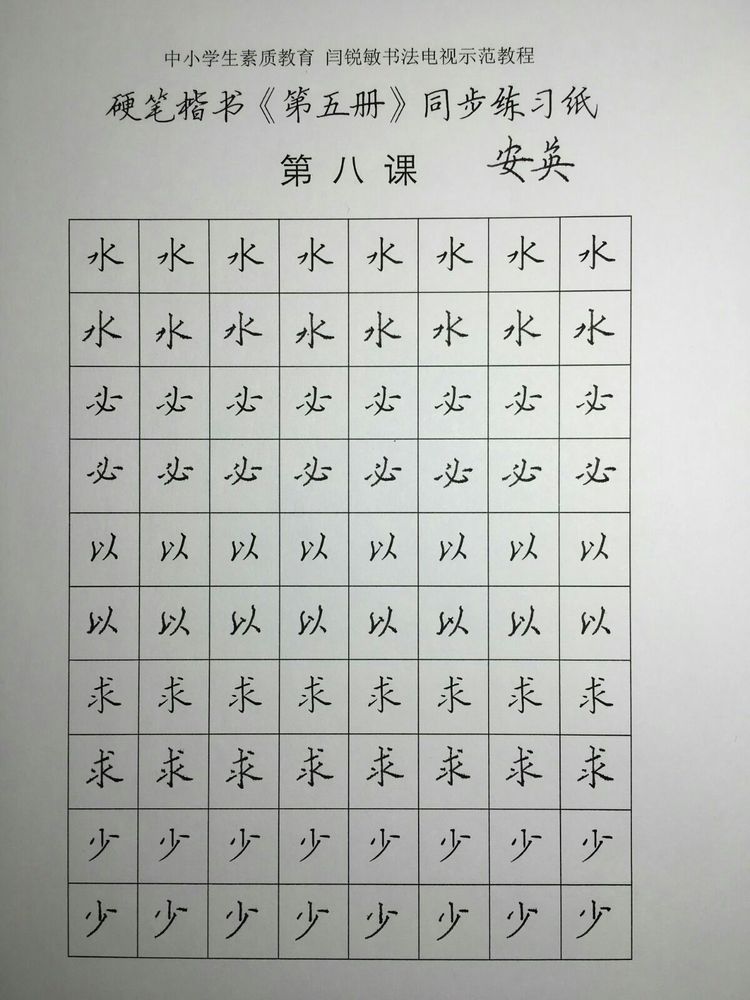 中小学生素质教育 闫锐敏书法电视示范教程
硬笔楷书《第五册》同步练习纸
第八课 安英
水 水 水 水 水 水 水 水
水 水 水 水 水 水 水 水
必 必 必 必 必 必 必 必
必 必 必 必 必 必 必 必
以 以 以 以 以 以 以 以
以 以 以 以 以 以 以 以
求 求 求 求 求 求 求 求
求 求 求 求 求 求 求 求
少 少 少 少 少 少 少 少
少 少 少 少 少 少 少 少